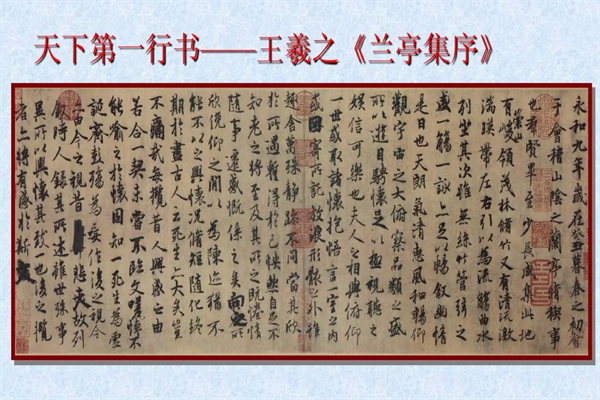 天下第一行书——王羲之《兰亭集序》
永和九年歲在癸丑暮春之初會
于會稽山陰之蘭亭脩稧事
也群賢畢至少長咸集此地
有崇山峻領茂林脩竹又有清流激
湍暎帶左右引以為流觴曲水
列坐其次雖無絲竹管弦之
盛一觴一詠亦足以暢敘幽情
是日也天朗氣清惠風和暢仰
觀宇宙之大俯察品類之盛
所以遊目騁懷足以極視聽之
娛信可樂也夫人之相與俯仰
一世或取諸懷抱悟言一室之內
或因寄所託放浪形骸之外雖
趣舍萬殊靜躁不同當其欣
於所遇蹔得於己怏然自足不
知老之將至及其所之既惓情
隨事遷感慨係之矣向之所
欣俛仰之閒以為陳迹猶不
能不以之興懷況脩短隨化終
期於盡古人云死生亦大矣豈
不痛哉每攬昔人興感之由
若合一契未嘗不臨文嗟悼不
能喻之於懷固知一死生為虛
誕齊彭殤為妄作後之視今
亦由今之視昔悲夫故列
敘時人錄其所述雖世殊事
異所以興懷其致一也後之攬
者亦將有感於斯文